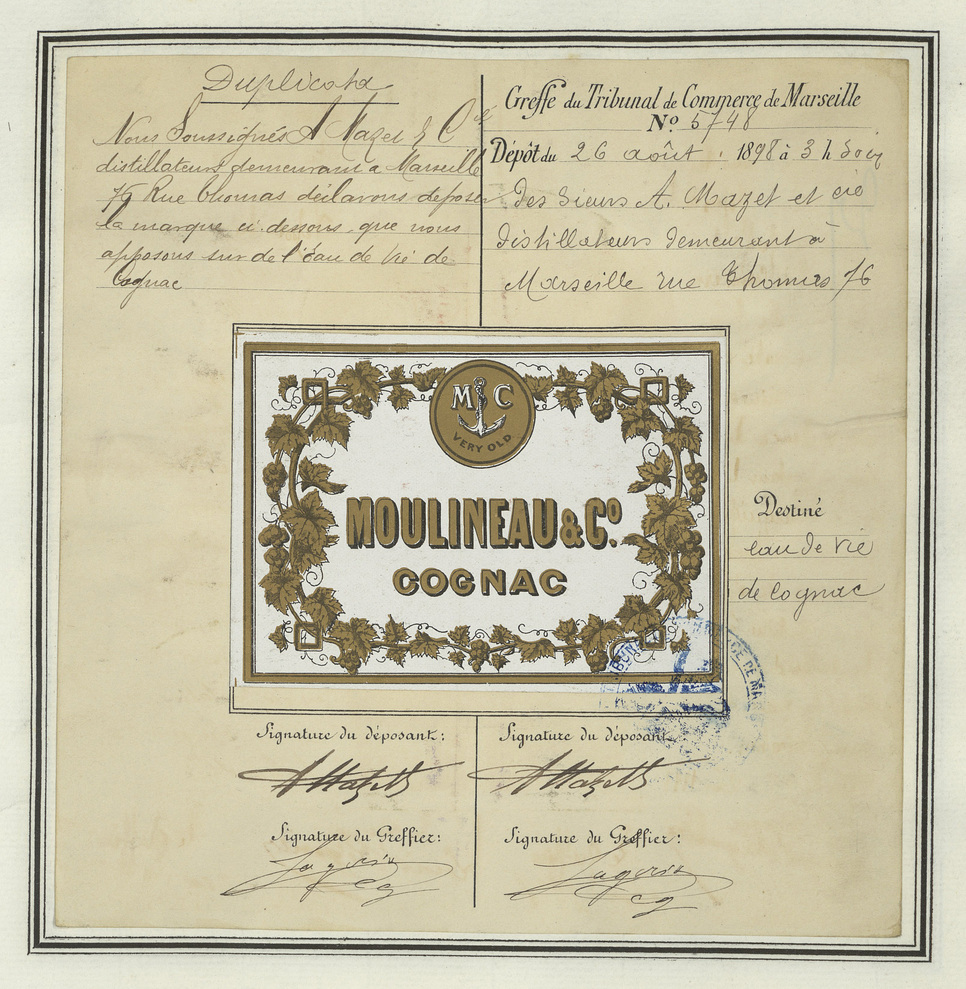 Duplicata
Nous Soussignés A Mazet & Cie
distillateurs demeurant a Marseille
76 Rue Thomas déclarons deposer
la marque ci-dessous que nous
apposons sur de l'Eau de Vie de
Cognac
Greffe du Tribunal de Commerce de Marseille
No 5748
Dépôt du 26 août 1898 à 3 h Soir
des sieurs A. Mazet et cie
distillateurs demeurant à
Marseille rue Thomas 76
M C
VERY OLD
MOULINEAU & Co.
COGNAC
Destiné
eau de vie
de cognac
Signature du déposant:
A Mazet
Signature du Greffier:
Signature du déposant
A Mazet
Signature du Greffier: